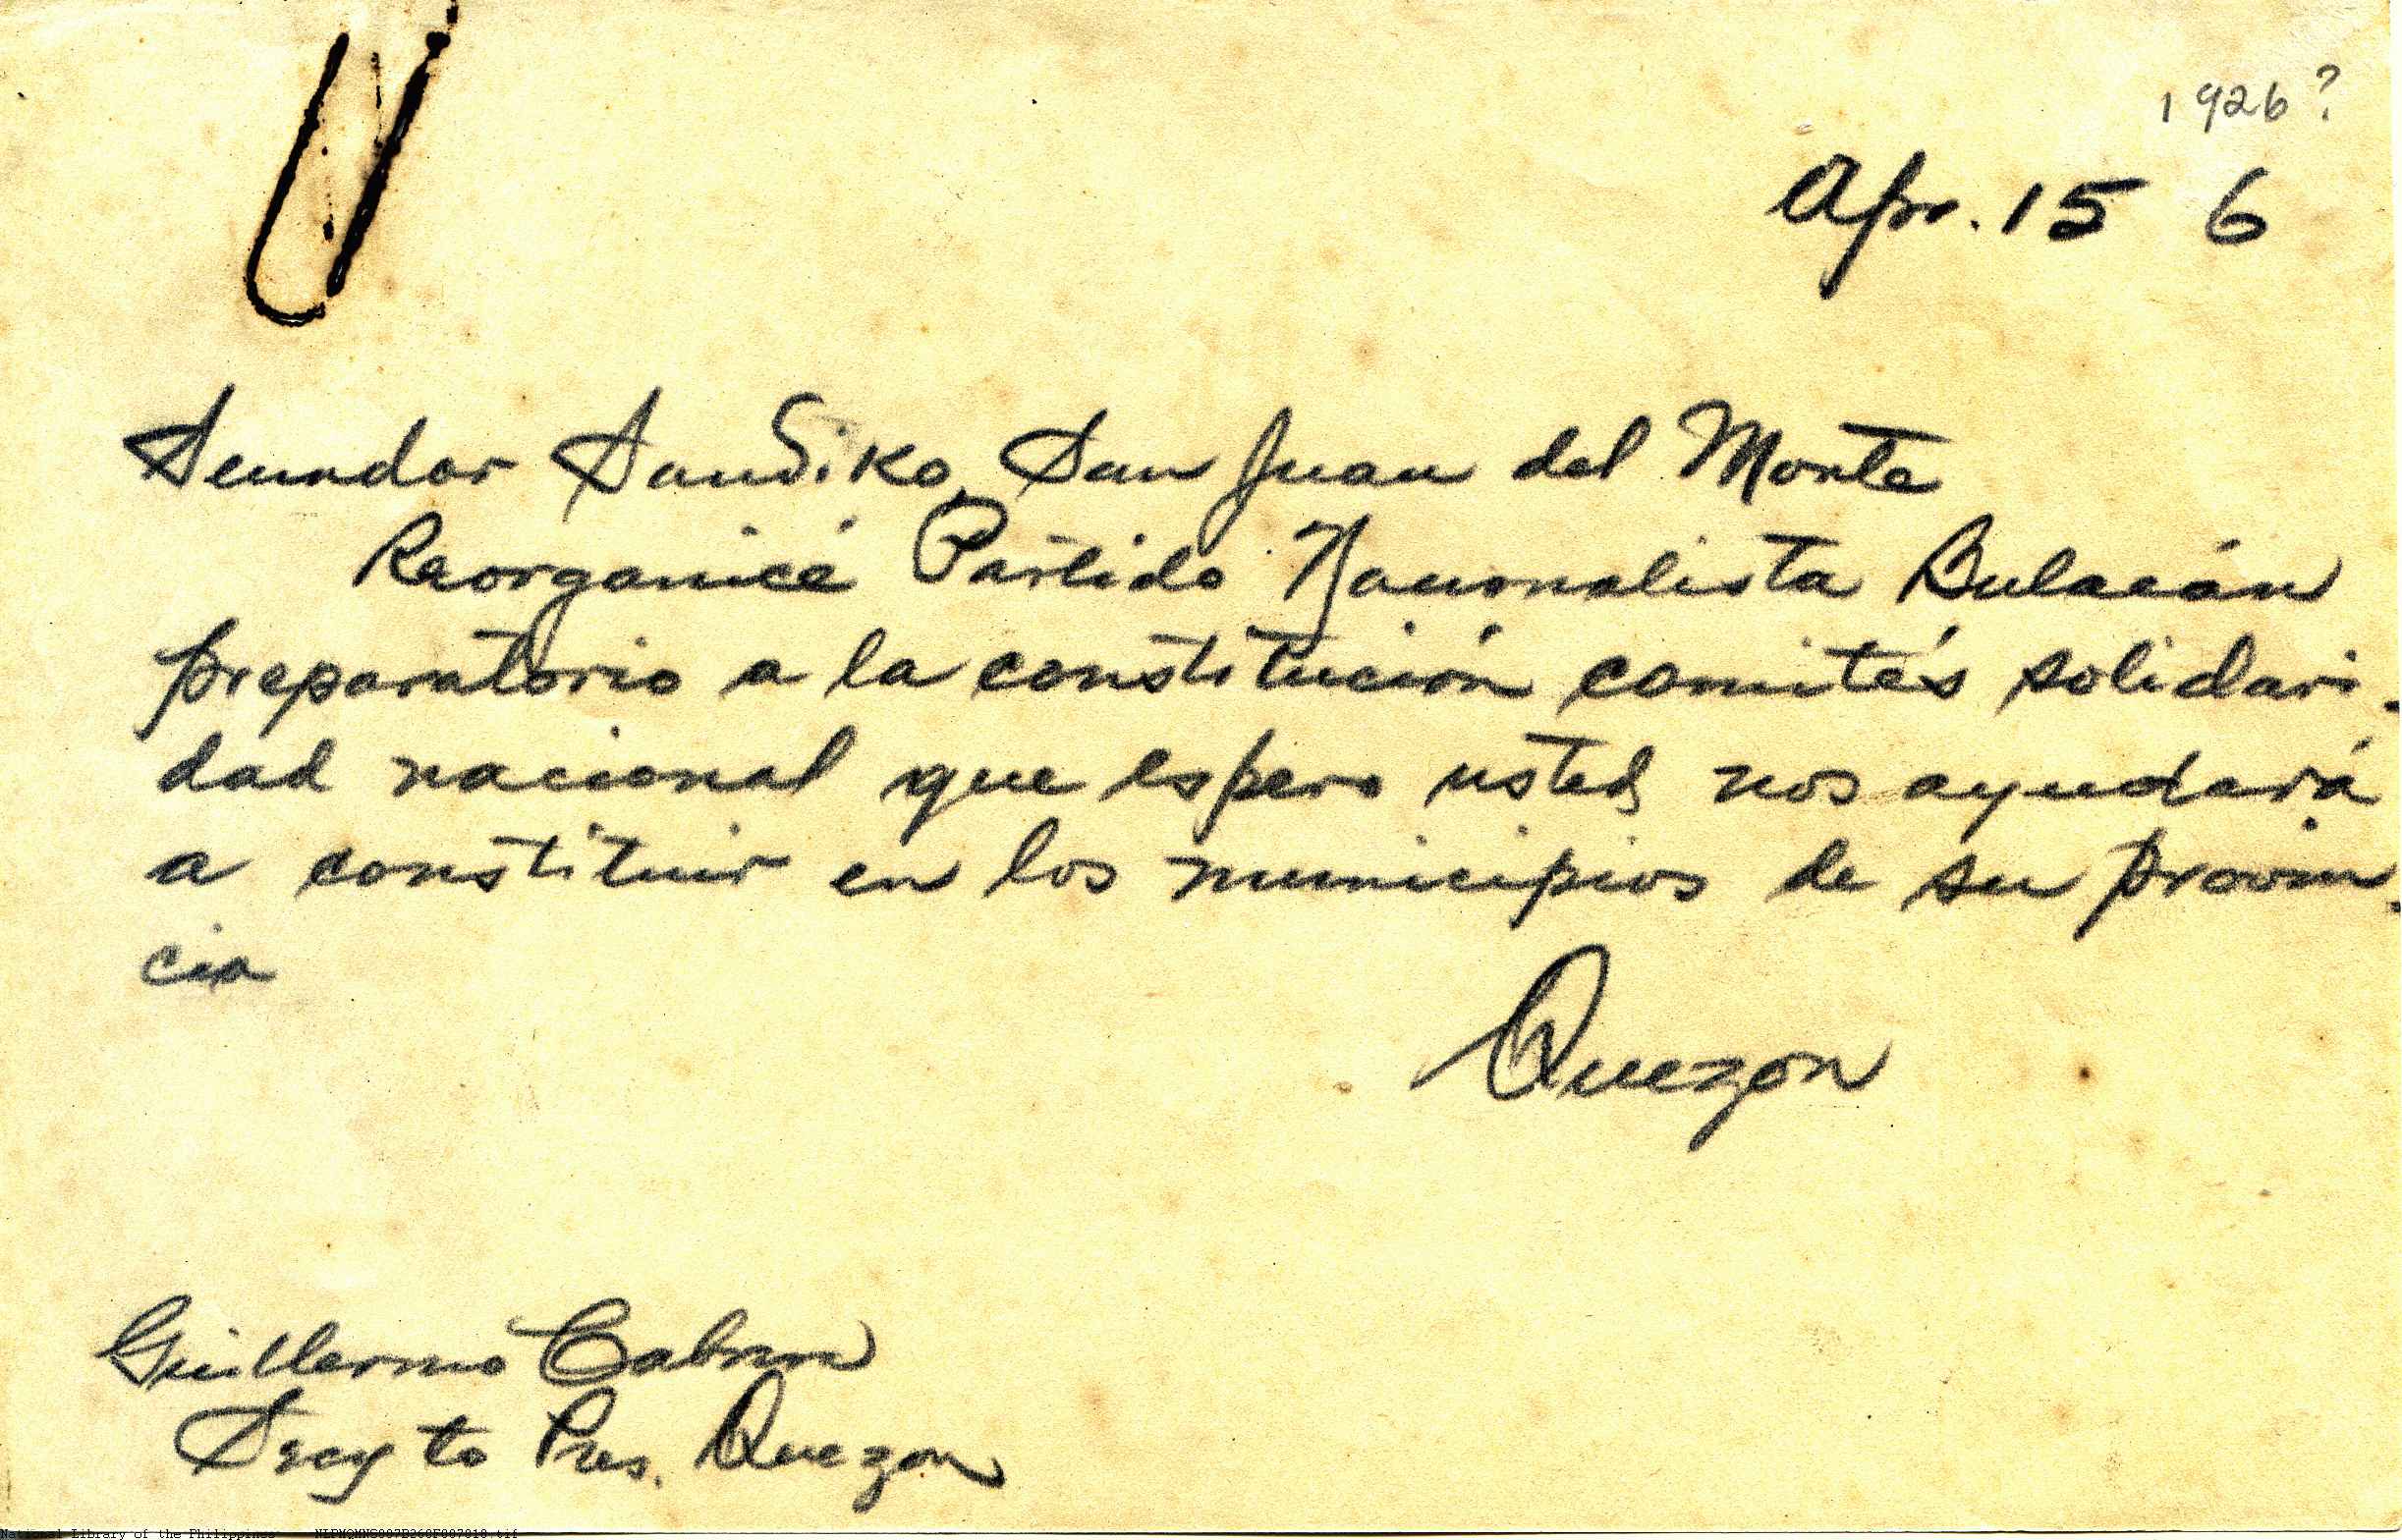 1926?
Apr. 15 6
Senador Sandiko, San Juan del Monte
Reorganicé Partido Nacionalista Bulacán
preparatorio a la constitución comités solidari-
dad nacional que espero usted nos ayudará
a constituir en los municipios de su provin-
cia
Quezon
Guillermo Cabrera
Srcy to Pres. Quezon
National Library of the Philippines